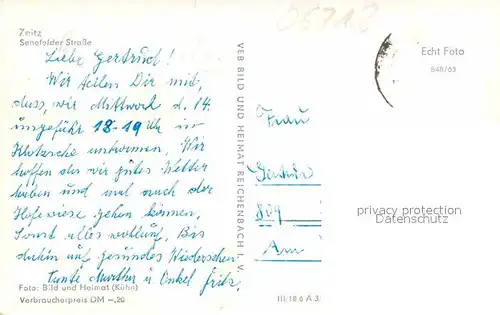 Zeitz
Senefelder Straße
Liebe Gertrud!
Wir teilen Dir mit,
dass, wir Mittwoch d. 14.
ungefähr 18-19 Uhr in
Klotzsche ankommen. Wir
hoffen das wir gutes Wetter
haben und mal nach der
Hofewiese gehen können.
Sonst alles wohlauf. Bis
dahin auf gesundes Wiedersehen
Tante Martha u Onkel Fritz.
Foto: Bild und Heimat (Kühn)
Verbraucherpreis DM –,20
VEB BILD UND HEIMAT REICHENBACH I. V.
05718
Echt Foto
848/63
Frau
809
Am
privacy protection
Datenschutz
III/18 6 A 3/